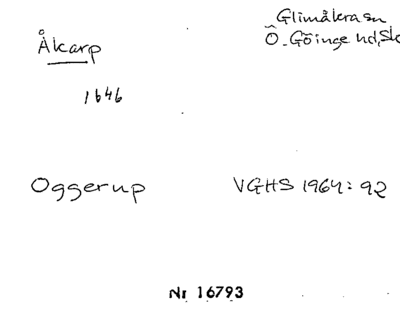 Glimåkra sn
Åkarp
Ö. Göinge hd, Sk
1646
Oggerup
VGHS 1964: 92
Nr 16793